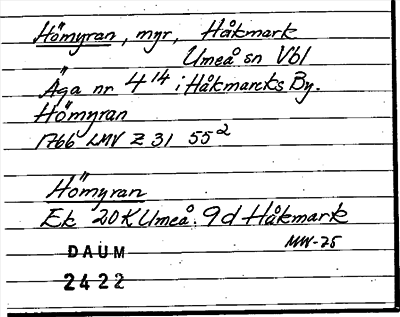 Hömyran, myr, Håkmark
Umeå sn Vbl
Äga nr 4 14 i Håkmarcks By.
Hömyran
1766 LMV Z 31 55²
Hömyran
Ek 20 K Umeå. 9 d Håkmark
MW-75
DAUM
2422